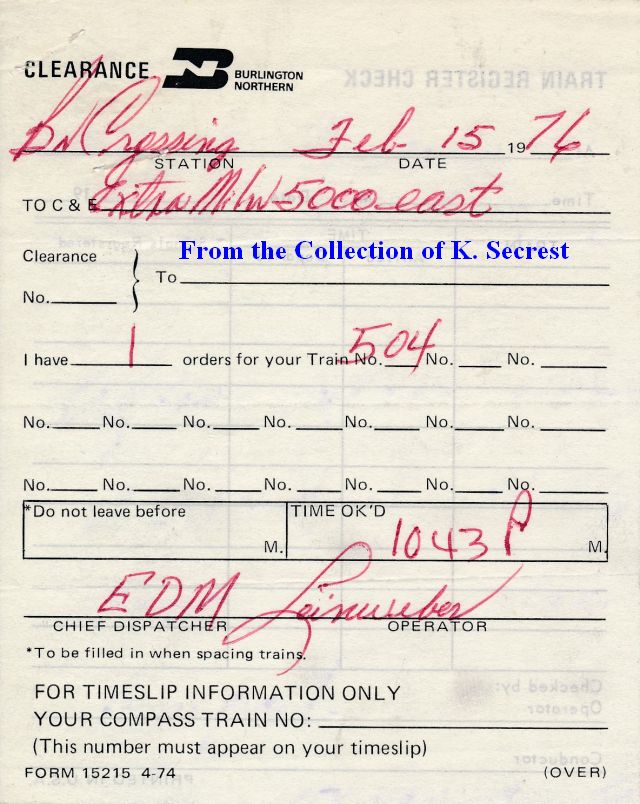 CLEARANCE BN BURLINGTON NORTHERN
Bn Crossing Feb 15 1976
STATION DATE
TO C & E Extra Milw 5000 east
From the Collection of K. Secrest
Clearance
No. To
I have 1 orders for your Train No. 504 No. No.
No. No. No. No. No. No. No.
No. No. No. No. No. No. No.
*Do not leave before TIME OK'D
M. 1043 P M.
EDM Leinweber
CHIEF DISPATCHER OPERATOR
*To be filled in when spacing trains.
FOR TIMESLIP INFORMATION ONLY
YOUR COMPASS TRAIN NO:
(This number must appear on your timeslip)
FORM 15215 4-74 (OVER)